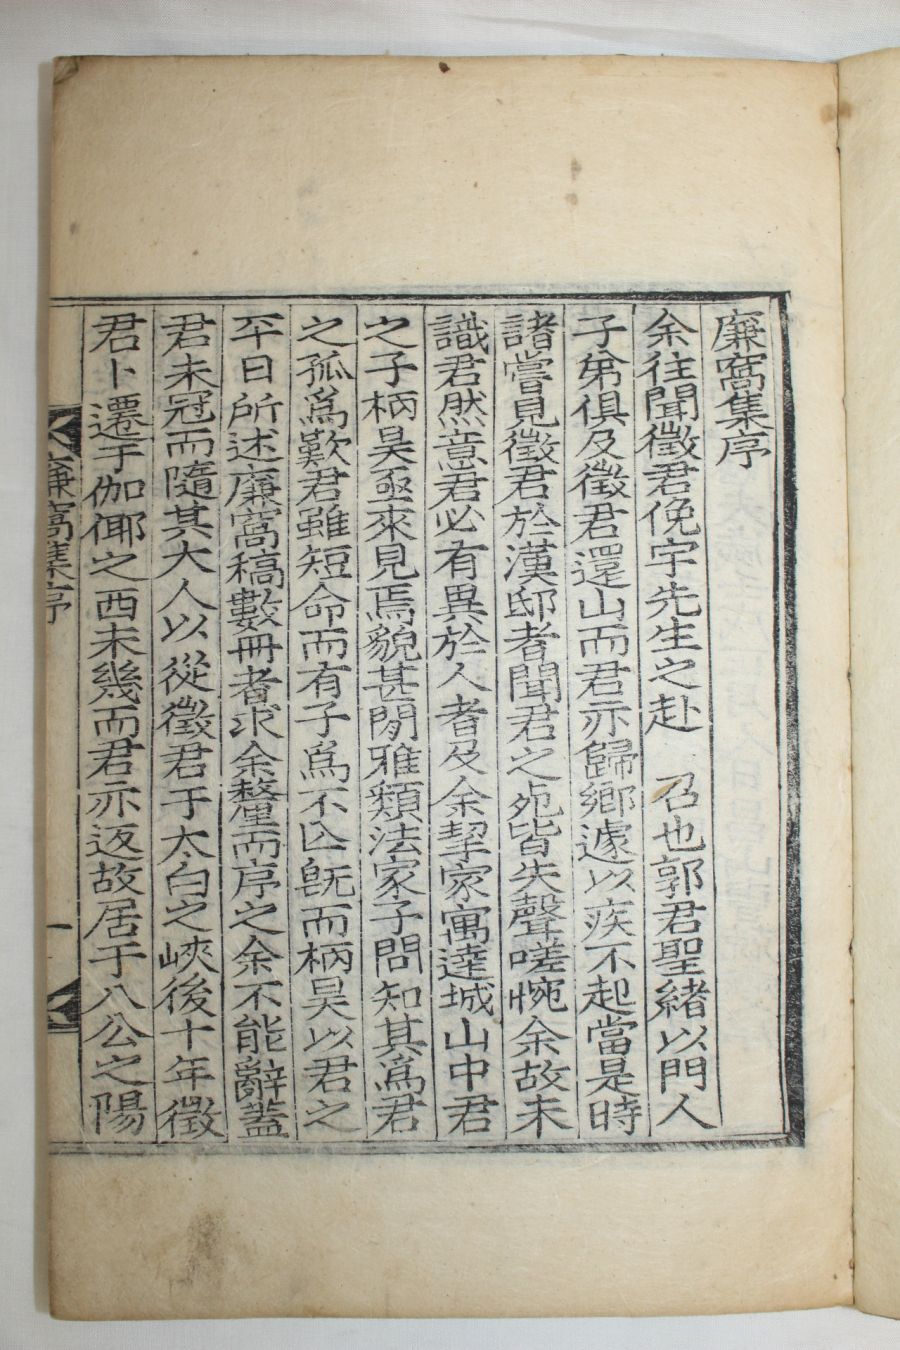 廉窩集序
余往聞徵君俛宇先生之赴　召也郭君聖緒以門人
子弟俱及徵君還山而君亦歸鄉遽以疾不起當是時
諸嘗見徵君於漢邸者聞君之死皆失聲嗟惋余故未
識君然意君必有異於人者及余挈家寓達城山中君
之子柄昊亟來見焉貌甚閒雅類法家子問知其爲君
之孤爲歎君雖短命而有子爲不亾旣而柄昊以君之
平日所述廉窩稿數冊者求余釐而序之余不能辭蓋
君未冠而隨其大人以從徵君于太白之峽後十年徵
君卜遷于伽倻之西未幾而君亦返故居于八公之陽
廉窩集序
一